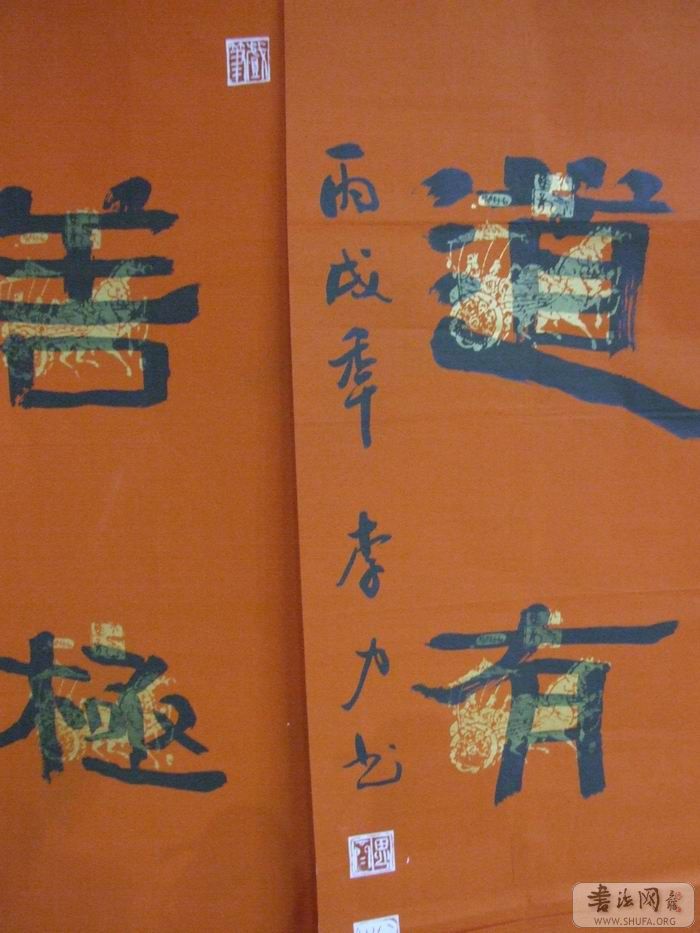 道有
丙戌秊 李力书
善極
書法网
WWW.SHUFA.ORG